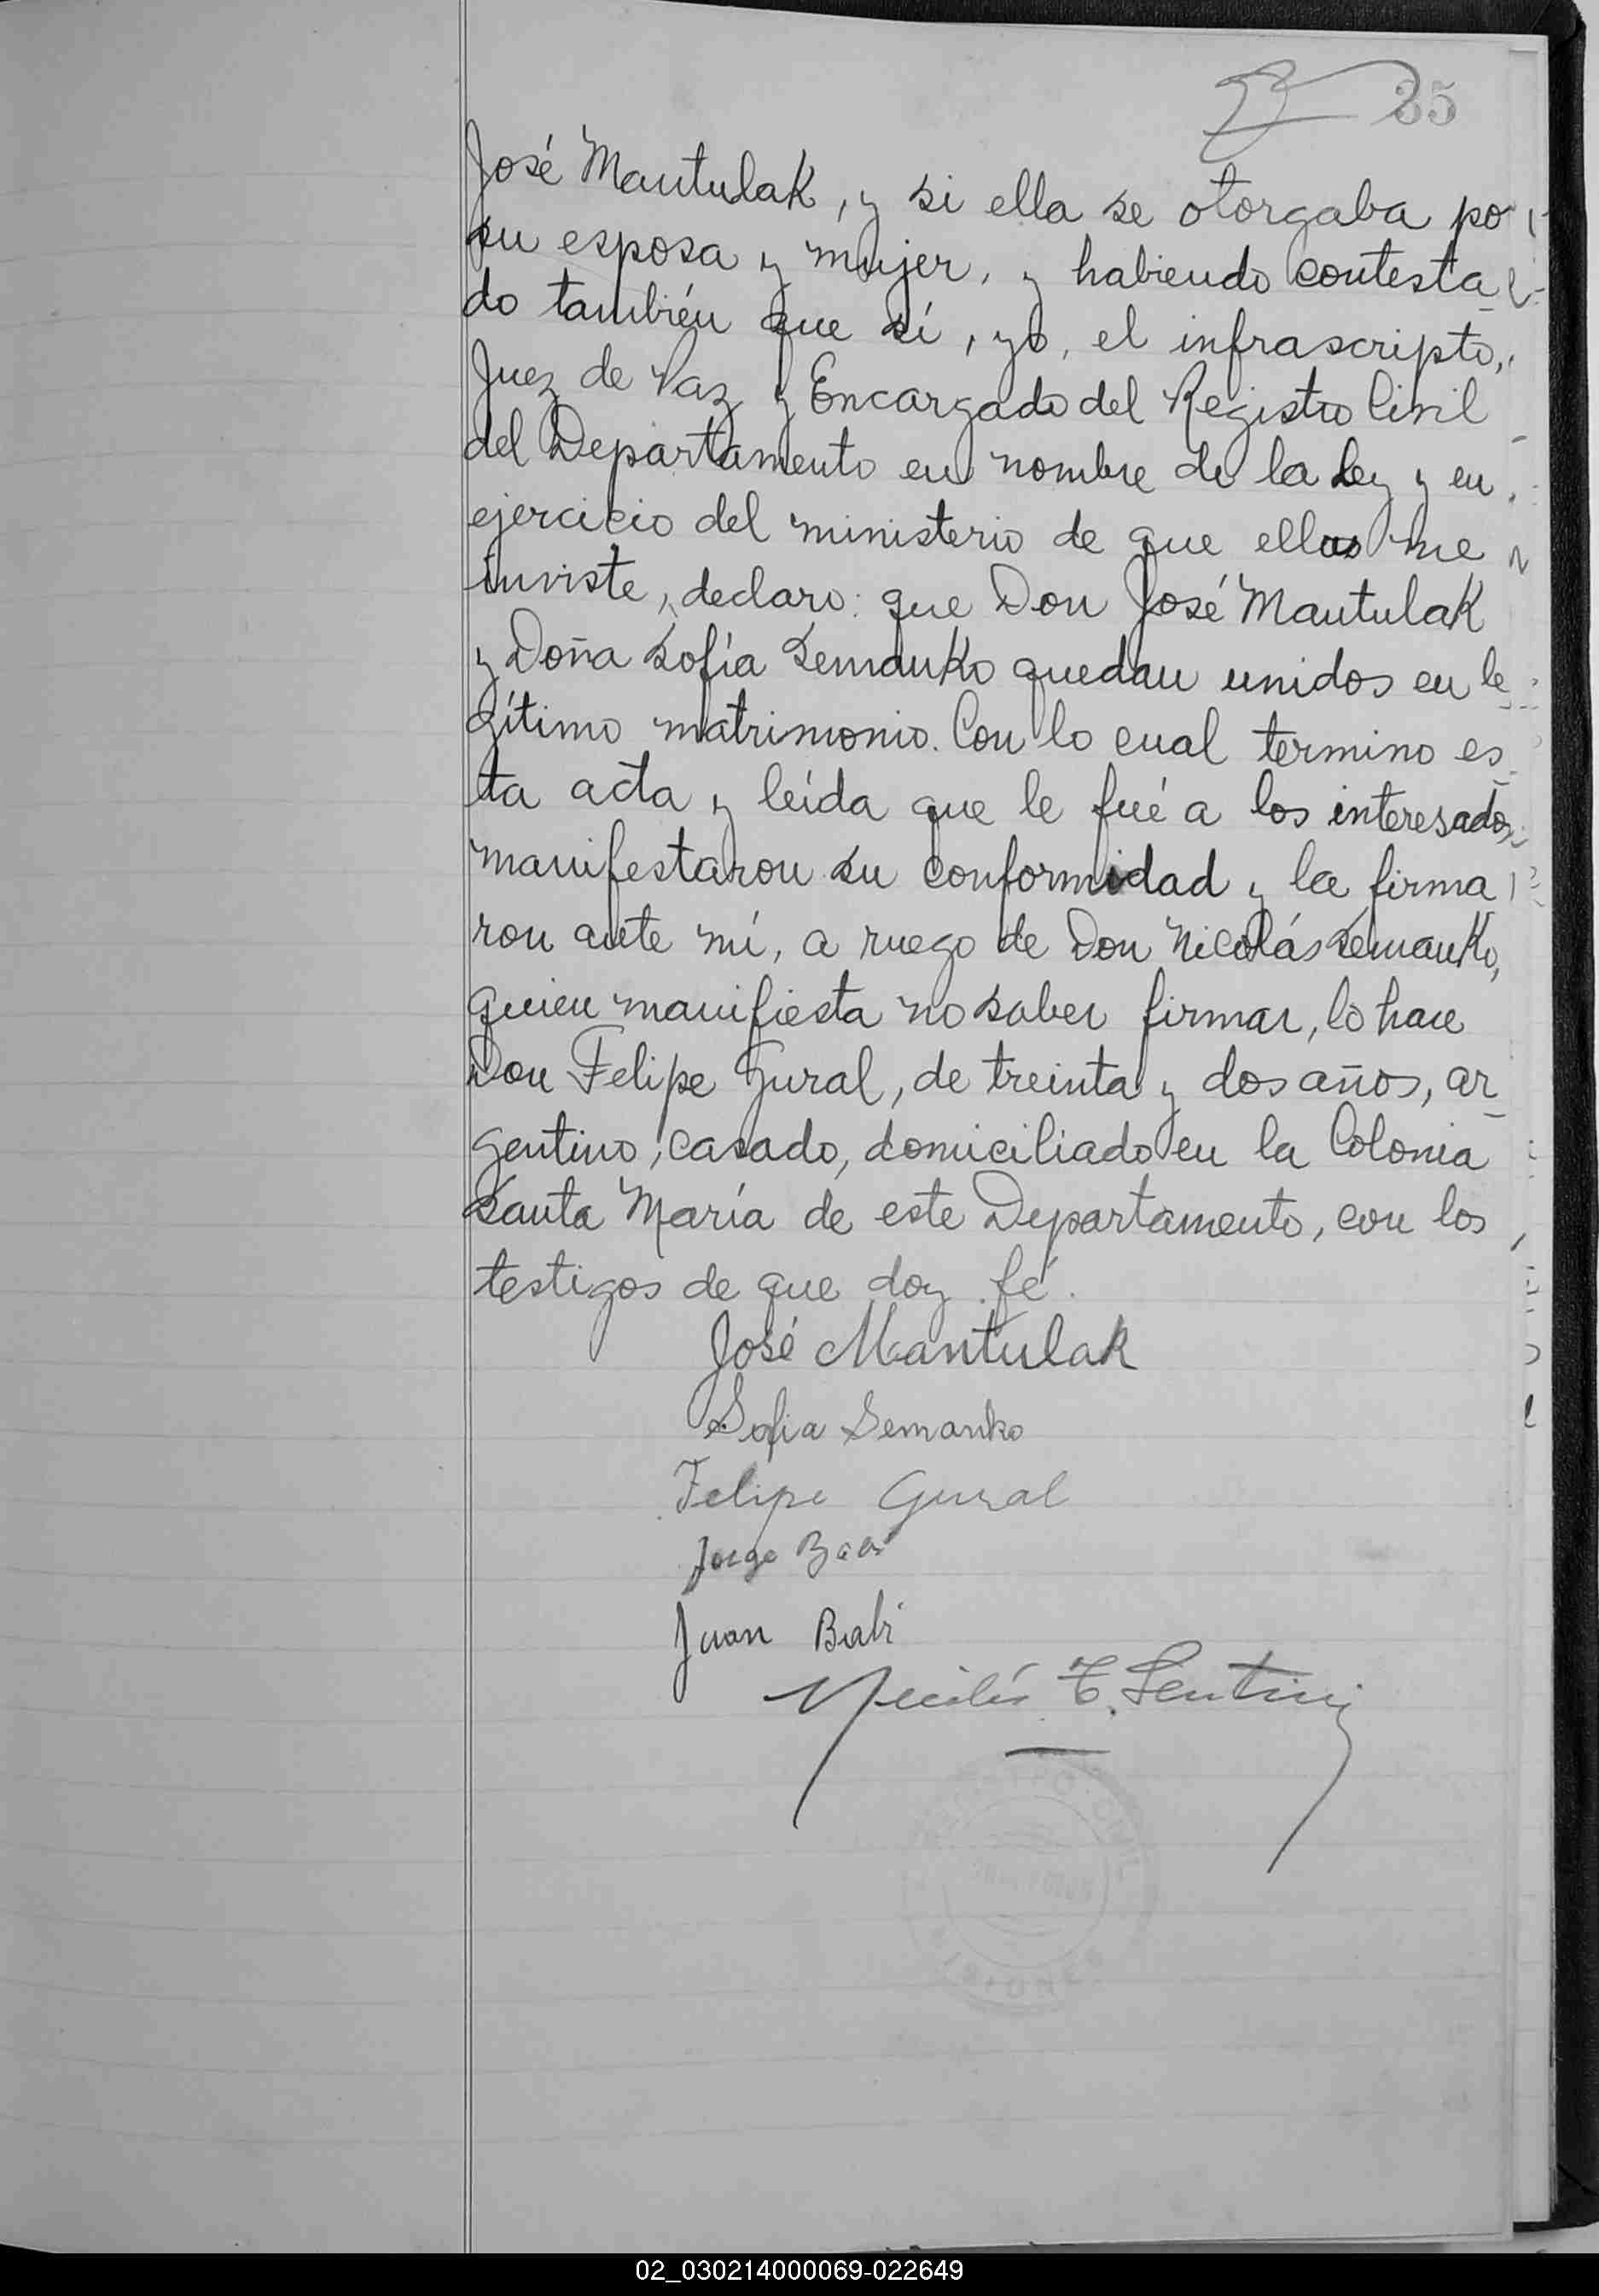 35
José Mantulak, y si ella se otorgaba por
su esposa y mujer, y habiendo contesta
do también que sí, yo, el infrascripto,
Juez de Paz y Encargado del Registro Civil
del Departamento en nombre de la Ley y en
ejercicio del ministerio de que ellas me
inviste, declaro: que Don José Mantulak
y Doña Sofía Semanko quedan unidos en le
gítimo matrimonio. Con lo cual termino es
ta acta y leída que le fué a los interesados
manifestaron su conformidad y la firma
ron ante mí, a ruego de Don Nicolás Semanko,
quien manifiesta no saber firmar, lo hace
Don Felipe Gural, de treinta y dos años, ar
gentino, casado, domiciliado en la Colonia
Santa María de este Departamento, con los
testigos de que doy fé.
José Mantulak
Sofia Semanko
Felipe Gural
Jorge
Juan Babi
REGISTRO CIVIL
MISIONES
02_030214000069-022649